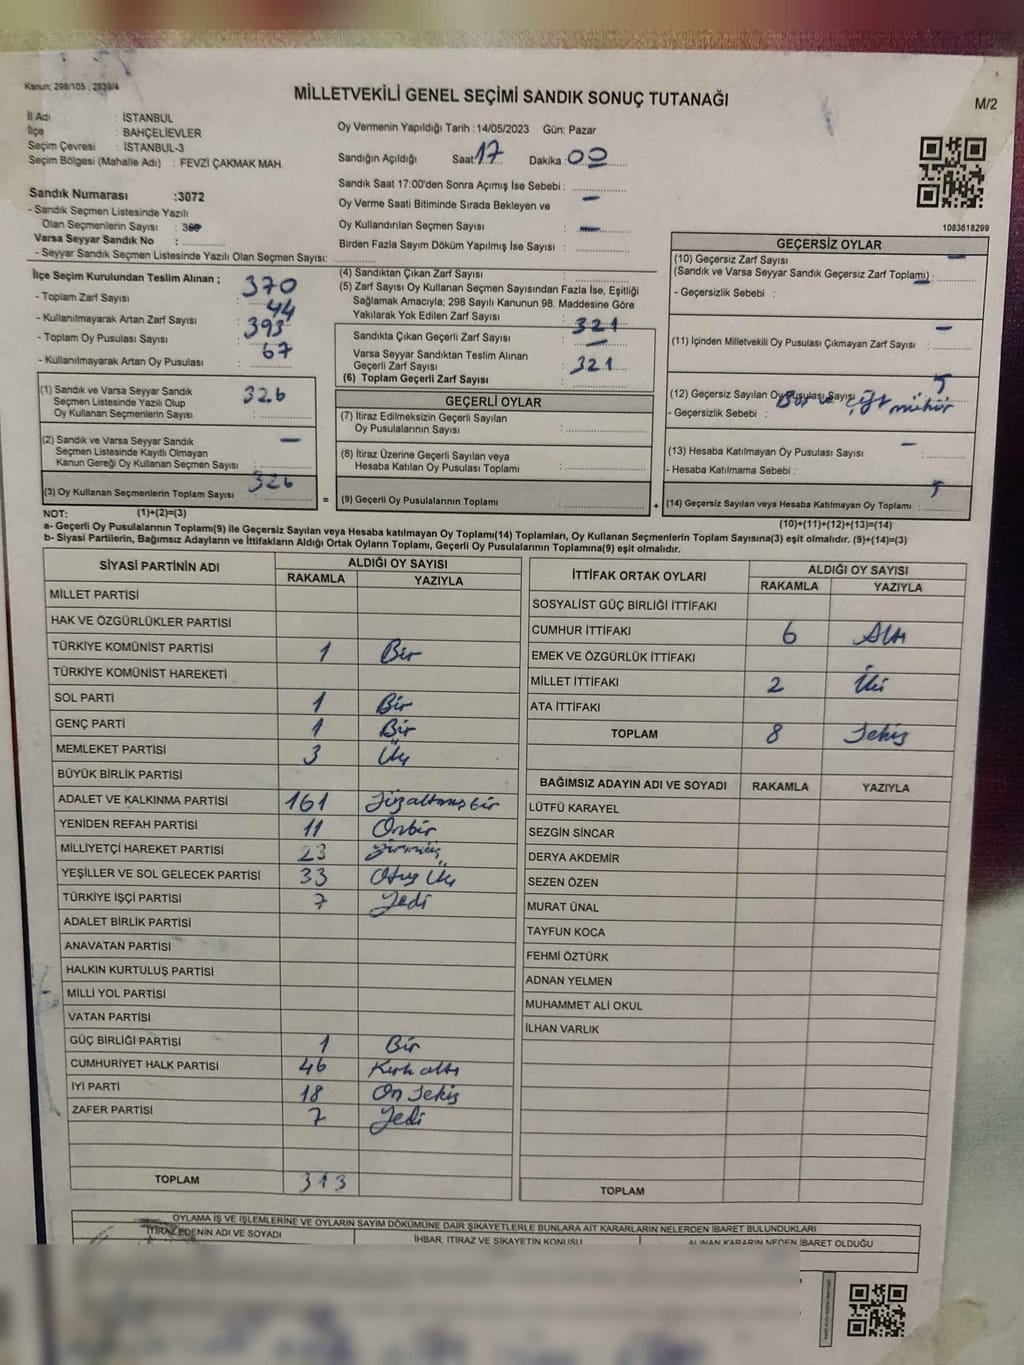 Kanun: 298/105 , 2839/4
MİLLETVEKİLİ GENEL SEÇİMİ SANDIK SONUÇ TUTANAĞI
M/2
İl Adı : İSTANBUL
İlçe : BAHÇELİEVLER
Seçim Çevresi : İSTANBUL-3
Seçim Bölgesi (Mahalle Adı) : FEVZİ ÇAKMAK MAH.
Oy Vermenin Yapıldığı Tarih : 14/05/2023 Gün: Pazar
Sandığın Açıldığı Saat: 17 Dakika : 00
Sandık Saat 17:00'den Sonra Açımış İse Sebebi :
Oy Verme Saati Bitiminde Sırada Bekleyen ve
Oy Kullandırılan Seçmen Sayısı : —
Birden Fazla Sayım Döküm Yapılmış İse Sayısı :
Sandık Numarası :3072
- Sandık Seçmen Listesinde Yazılı
Olan Seçmenlerin Sayısı :
Varsa Seyyar Sandık No :
- Seyyar Sandık Seçmen Listesinde Yazılı Olan Seçmen Sayısı:
1083618299
İlçe Seçim Kurulundan Teslim Alınan ;
- Toplam Zarf Sayısı : 370
- Kullanılmayarak Artan Zarf Sayısı : 44
- Toplam Oy Pusulası Sayısı : 393
- Kullanılmayarak Artan Oy Pusulası : 67
(1) Sandık ve Varsa Seyyar Sandık
Seçmen Listesinde Yazılı Olup
Oy Kullanan Seçmenlerin Sayısı : 326
(2) Sandık ve Varsa Seyyar Sandık
Seçmen Listesinde Kayıtlı Olmayan
Kanun Gereği Oy Kullanan Seçmen Sayısı : —
(3) Oy Kullanan Seçmenlerin Toplam Sayısı : 326
(4) Sandıktan Çıkan Zarf Sayısı :
(5) Zarf Sayısı Oy Kullanan Seçmen Sayısından Fazla İse, Eşitliği
Sağlamak Amacıyla; 298 Sayılı Kanunun 98. Maddesine Göre
Yakılarak Yok Edilen Zarf Sayısı :
Sandıkta Çıkan Geçerli Zarf Sayısı : 321
Varsa Seyyar Sandıktan Teslim Alınan
Geçerli Zarf Sayısı : —
(6) Toplam Geçerli Zarf Sayısı : 321
GEÇERLİ OYLAR
(7) İtiraz Edilmeksizin Geçerli Sayılan
Oy Pusulalarının Sayısı :
(8) İtiraz Üzerine Geçerli Sayılan veya
Hesaba Katılan Oy Pusulası Toplamı :
= (9) Geçerli Oy Pusulalarının Toplamı : +
GEÇERSİZ OYLAR
(10) Geçersiz Zarf Sayısı —
(Sandık ve Varsa Seyyar Sandık Geçersiz Zarf Toplamı) : —
- Geçersizlik Sebebi :
(11) İçinden Milletvekili Oy Pusulası Çıkmayan Zarf Sayısı : —
(12) Geçersiz Sayılan Oy Pusulası Sayısı : 5
- Geçersizlik Sebebi : Boş ve Çift mühür
(13) Hesaba Katılmayan Oy Pusulası Sayısı : —
- Hesaba Katılmama Sebebi :
(14) Geçersiz Sayılan veya Hesaba Katılmayan Oy Toplamı : 5
NOT: (1)+(2)=(3)
(10)+(11)+(12)+(13)=(14)
a- Geçerli Oy Pusulalarının Toplamı(9) ile Geçersiz Sayılan veya Hesaba katılmayan Oy Toplamı(14) Toplamları, Oy Kullanan Seçmenlerin Toplam Sayısına(3) eşit olmalıdır. (9)+(14)=(3)
b- Siyasi Partilerin, Bağımsız Adayların ve İttifakların Aldığı Ortak Oyların Toplamı, Geçerli Oy Pusulalarının Toplamına(9) eşit olmalıdır.
SİYASİ PARTİNİN ADI ALDIĞI OY SAYISI
RAKAMLA YAZIYLA
MİLLET PARTİSİ
HAK VE ÖZGÜRLÜKLER PARTİSİ
TÜRKİYE KOMÜNİST PARTİSİ 1 Bir
TÜRKİYE KOMÜNİST HAREKETİ
SOL PARTİ 1 Bir
GENÇ PARTİ 1 Bir
MEMLEKET PARTİSİ 3 Üç
BÜYÜK BİRLİK PARTİSİ
ADALET VE KALKINMA PARTİSİ 161 Yüzaltmış bir
YENİDEN REFAH PARTİSİ 11 Onbir
MİLLİYETÇİ HAREKET PARTİSİ 23
YEŞİLLER VE SOL GELECEK PARTİSİ 33 Otuz Üç
TÜRKİYE İŞÇİ PARTİSİ 7 Yedi
ADALET BİRLİK PARTİSİ
ANAVATAN PARTİSİ
HALKIN KURTULUŞ PARTİSİ
MİLLİ YOL PARTİSİ
VATAN PARTİSİ
GÜÇ BİRLİĞİ PARTİSİ 1 Bir
CUMHURİYET HALK PARTİSİ 46 Kırk altı
İYİ PARTİ 18 On Sekiz
ZAFER PARTİSİ 7 Yedi
TOPLAM 313
İTTİFAK ORTAK OYLARI ALDIĞI OY SAYISI
RAKAMLA YAZIYLA
SOSYALİST GÜÇ BİRLİĞİ İTTİFAKI
CUMHUR İTTİFAKI 6 Altı
EMEK VE ÖZGÜRLÜK İTTİFAKI
MİLLET İTTİFAKI 2 İki
ATA İTTİFAKI
TOPLAM 8 Sekiz
BAĞIMSIZ ADAYIN ADI VE SOYADI RAKAMLA YAZIYLA
LÜTFÜ KARAYEL
SEZGİN SİNCAR
DERYA AKDEMİR
SEZEN ÖZEN
MURAT ÜNAL
TAYFUN KOCA
FEHMİ ÖZTÜRK
ADNAN YELMEN
MUHAMMET ALİ OKUL
İLHAN VARLIK
TOPLAM
OYLAMA İŞ VE İŞLEMLERİNE VE OYLARIN SAYIM DÖKÜMÜNE DAİR ŞİKAYETLERLE BUNLARA AİT KARARLARIN NELERDEN İBARET BULUNDUKLARI
İTİRAZ EDENİN ADI VE SOYADI İHBAR, İTİRAZ VE ŞİKAYETİN KONUSU ALINAN KARARIN NEDEN İBARET OLDUĞU